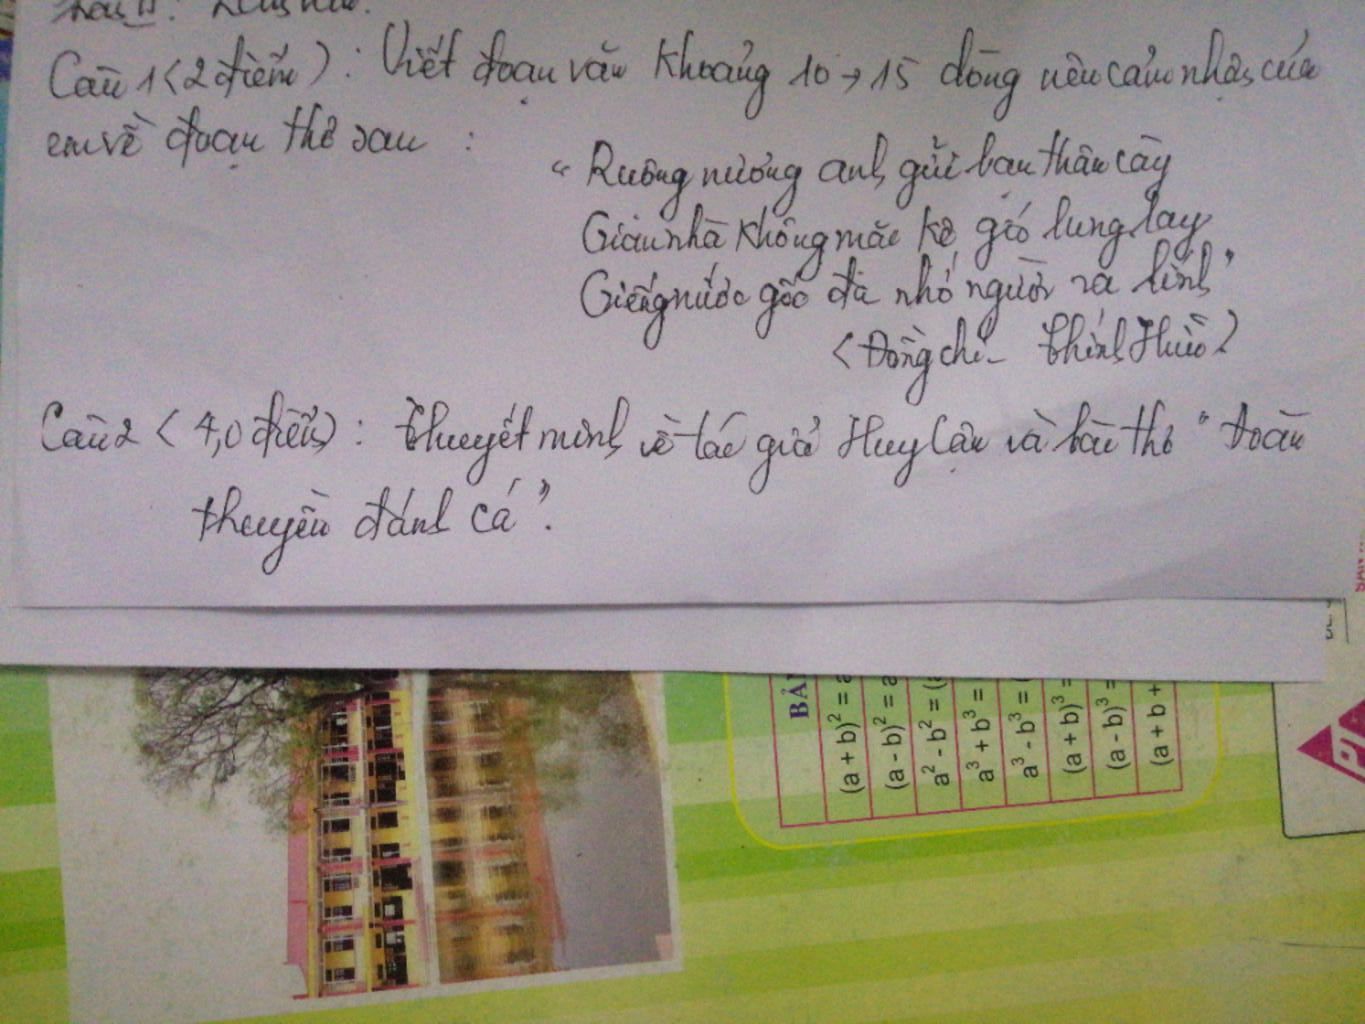 Câu 1 (2 điểm) : Viết đoạn văn khoảng 10 → 15 dòng nêu cảm nhận của
em về đoạn thơ sau :
“ Ruộng nương anh gửi bạn thân cày
Gian nhà không mặc kệ gió lung lay
Giếng nước gốc đa nhớ người ra lính”
(Đồng chí - Chính Hữu)
Câu 2 ( 4,0 điểm) : Thuyết minh về tác giả Huy Cận và bài thơ “ Đoàn
thuyền đánh cá”.
(a + b)² =
(a - b)² =
a² - b² = (
a³ + b³ =
a³ - b³ =
(a + b)³ =
(a - b)³ =
(a + b +